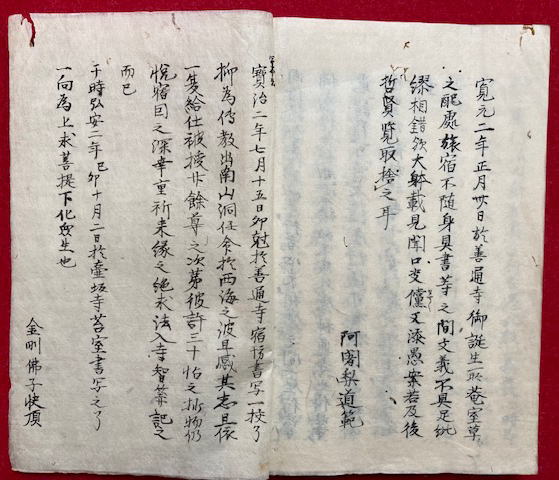 寛元二年正月廿日於善通寺御誕生所菴室草
之配處旅宿不随身具書等之間文義不具足紕
繆相錯欤大躰載見聞口交儻又添愚案若及後
哲賢覧取捨之耳
阿闍梨道範
寳治二年七月十五日卯尅於善通寺宿坊書写一校了
抑為傳教出南山洞任命於西海之波早感其志且依
一隻給仕被授廿餘尊之次第彼許三十帖之抄物仍
悦宿因之深幸重祈来縁之絶求法入寺智荣記之
而已
于時弘安二年己卯十月二日於壷坂寺苔室書写之了
一向為上求菩提下化衆生也
金剛佛子快頂